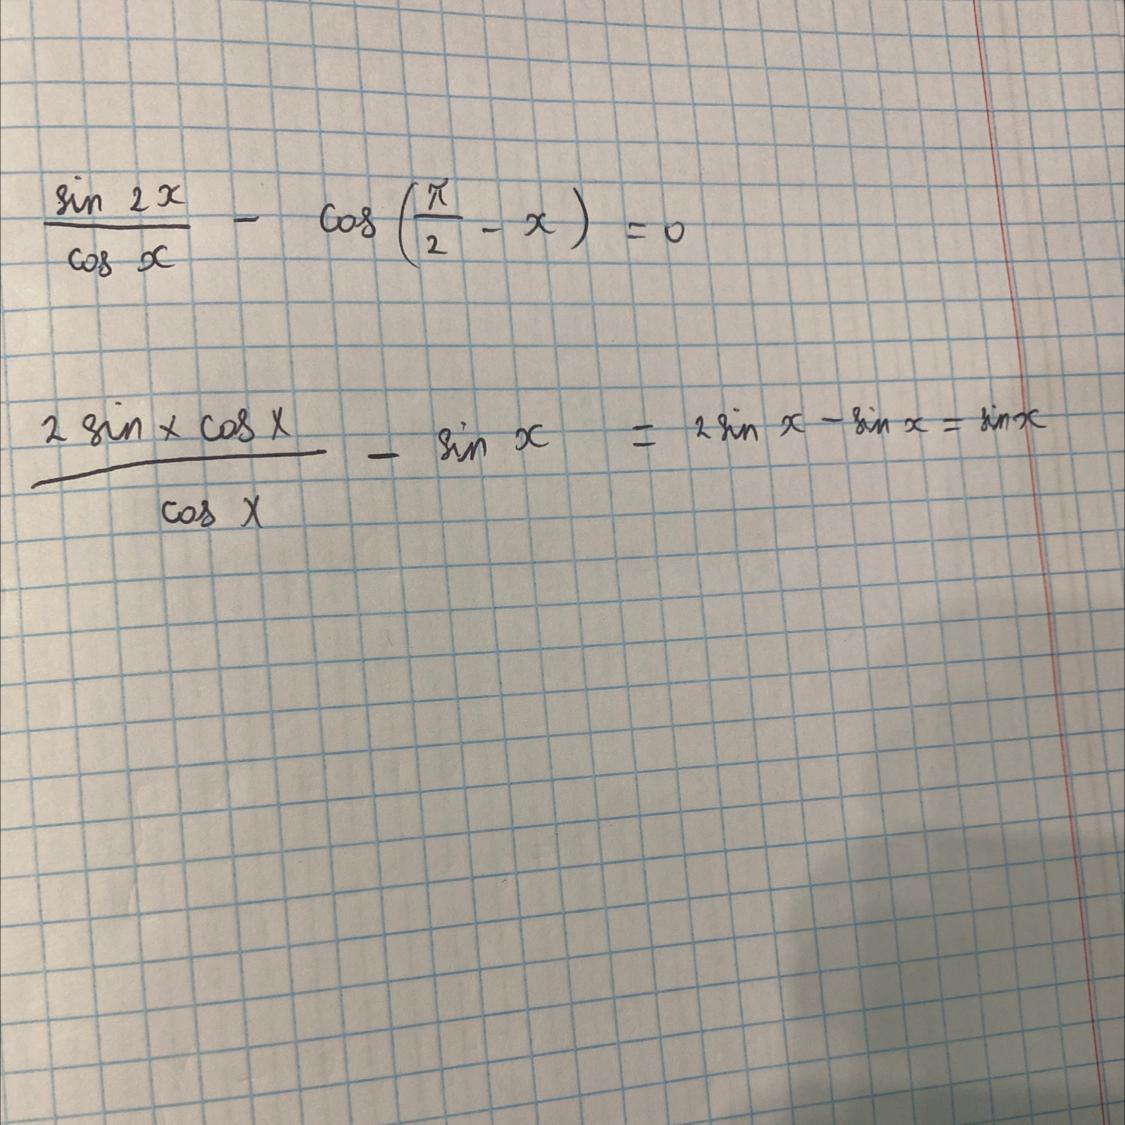 sin 2x / cos x - cos (π/2 - x) = 0
2 sin x cos x / cos x - sin x = 2 sin x - sin x = sin x